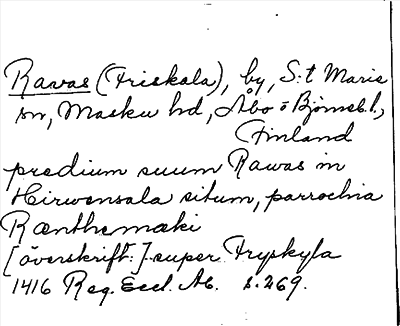 Rawas (Friskala), by, S:t Marie
sn, Masku hd, Åbo o Björneb. l.,
Finland
predium suum Rawas in
Hirwensala situm, parrochia
Rænthemæki
[överskrift:] super Fryskyla
1416 Reg. Eccl. Ab. s. 269.